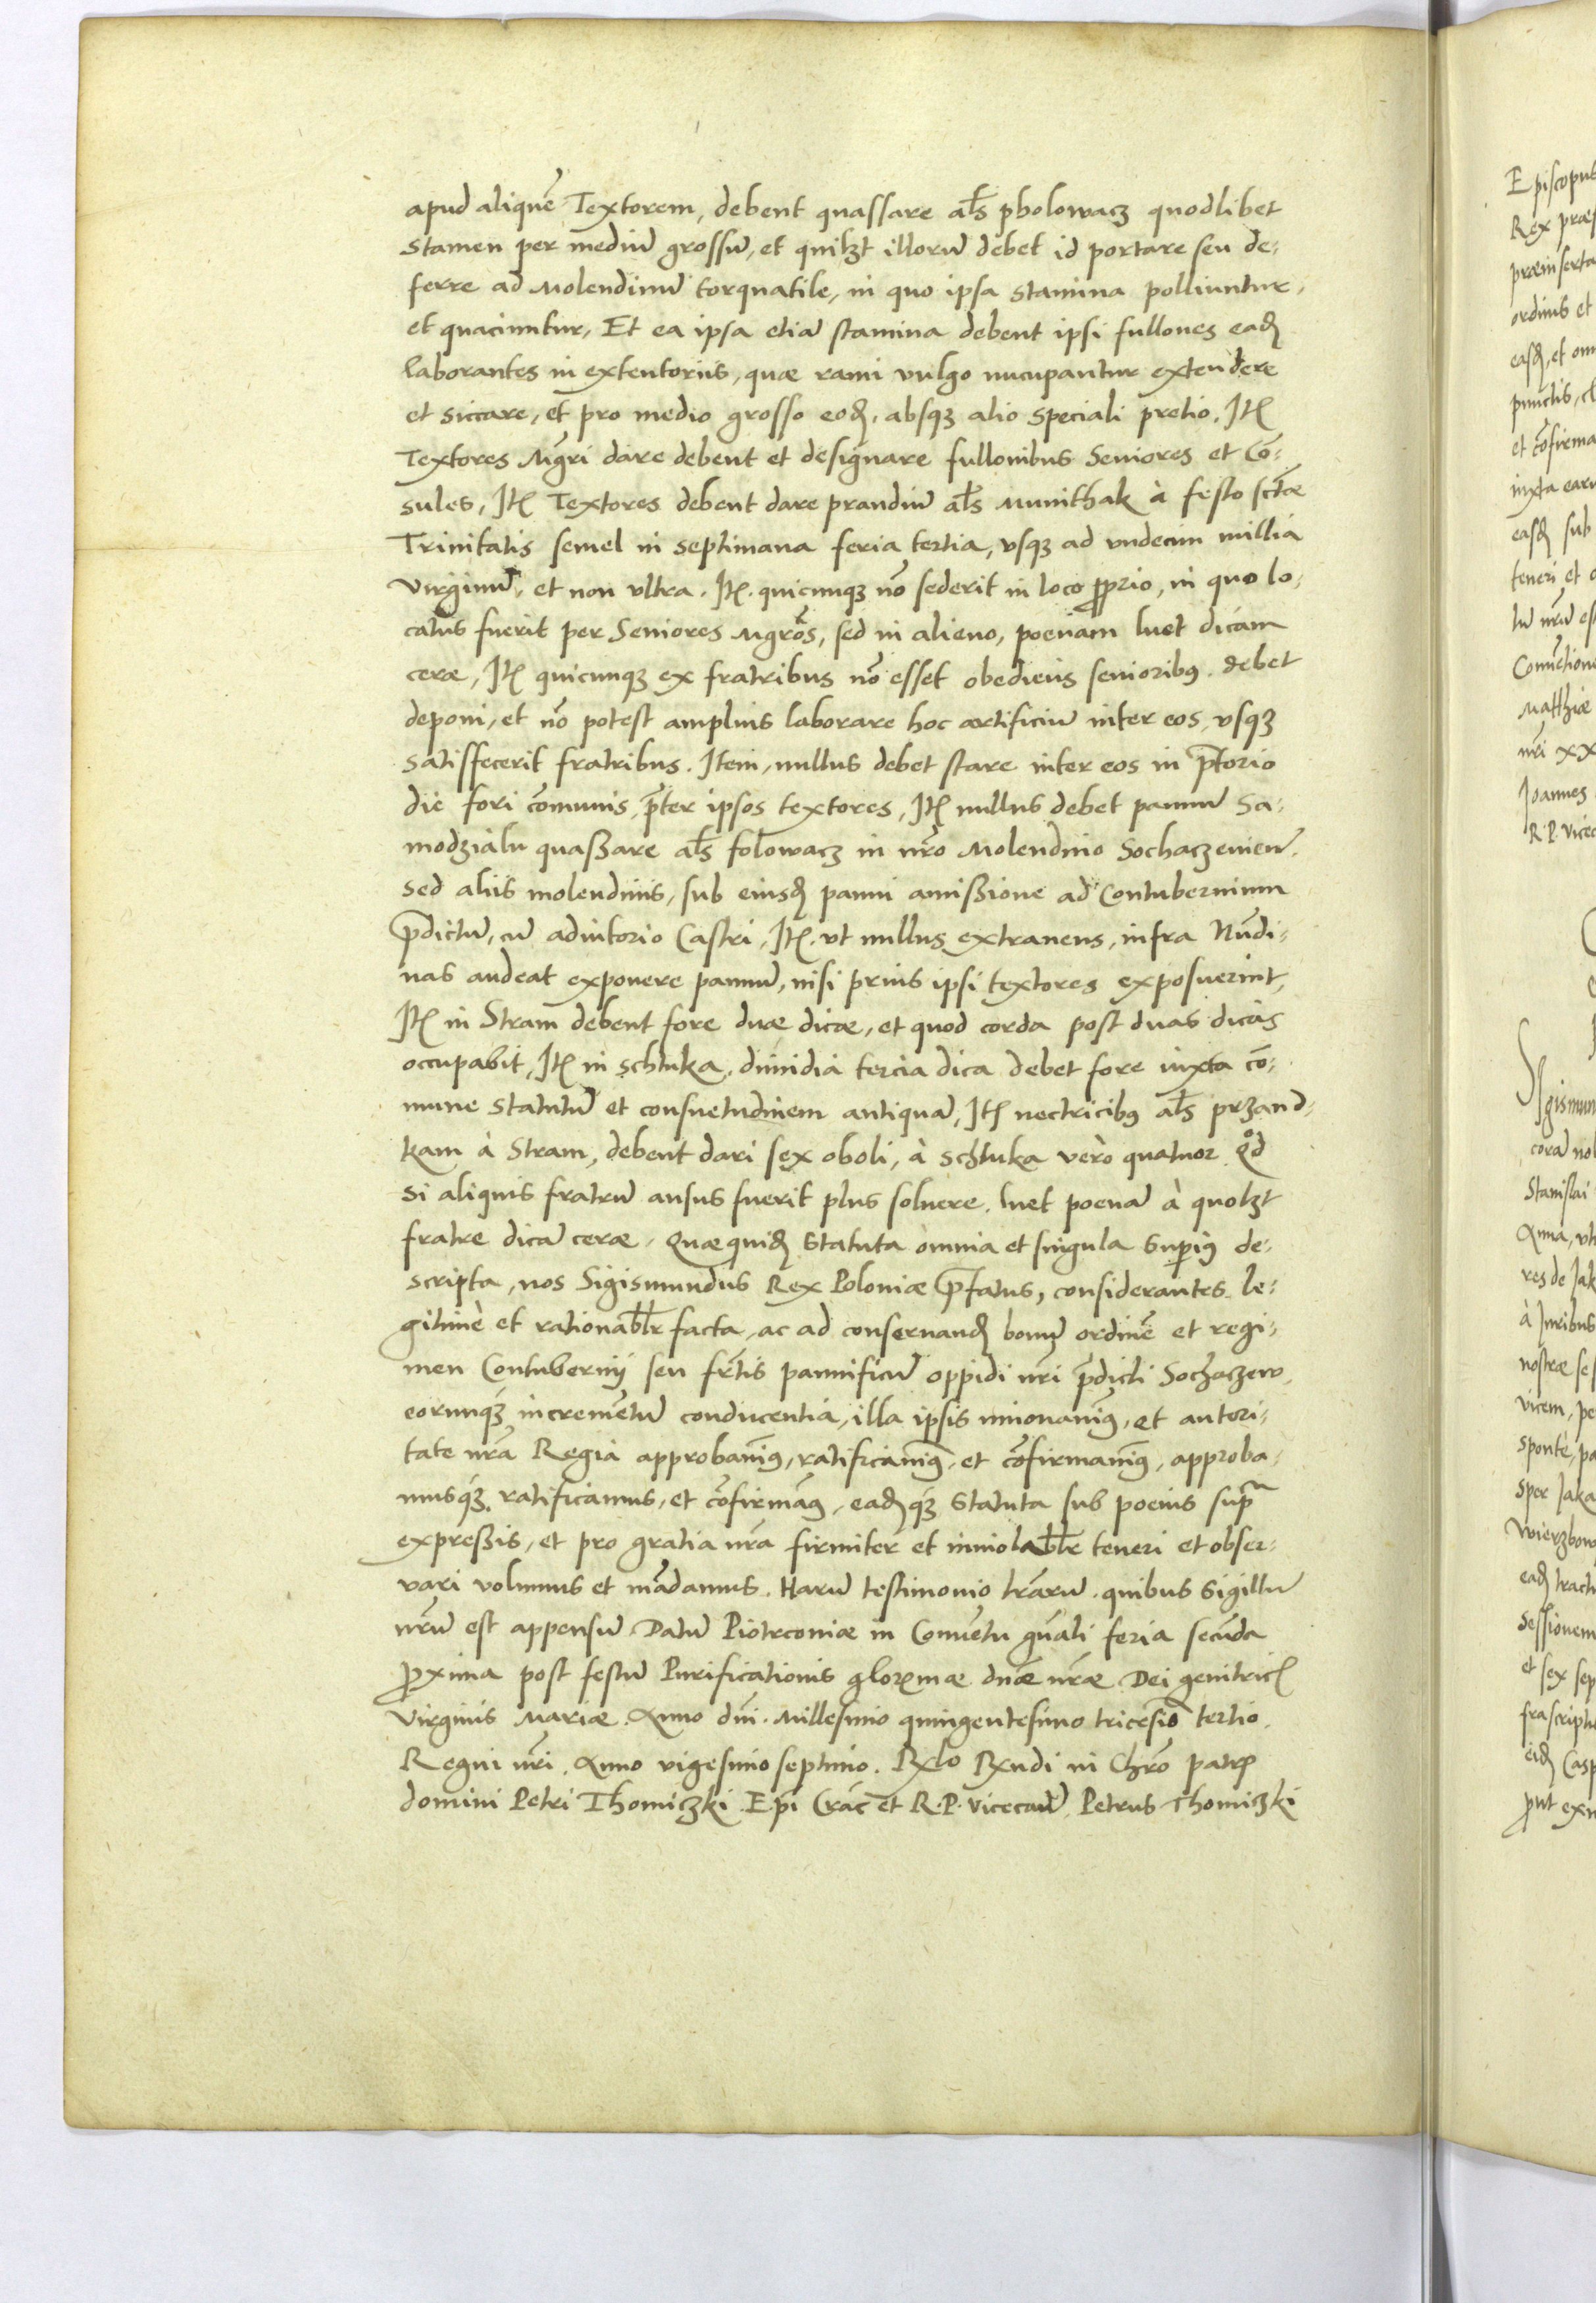 apud aliquẽ Textorem, debent quassare al̃s pholowacz quodlibet
stamen per mediũ grossũ, et quilꝫt illorũ debet id portare seu de-
ferre ad Molendinũ torquatile, in quo ipsa stamina polliuntur,
et quaciuntur, Et ea ipsa etiã stamina debent ipsi fullones eadẽ
laborantes in extentoriis, quæ rami vulgo nucupantur extendere
et siccare, et pro medio grosso eodẽ, absqꝫ alio speciali pretio. Itẽ
Textores Mgr̃i dare debent et designare fullonibus Seniores et Cõ-
sules, Itẽ Textores debent dare prandiũ al̃s Munithak à festo sctæ
Trinitatis semel in septimana feria tertia, vsqꝫ ad vndecim millia
Virginũ, et non vltra. Itẽ. quicunqꝫ nõ sederit in loco ꝓprio, in quo lo-
catus fuerit per Seniores Mgrõs, sed in alieno, poenam luet dicam
ceræ, Itẽ quicunqꝫ ex fratribus nõ esset obediens senioribꝰ. debet
deponi, et nõ potest amplius laborare hoc artificiũ inter eos, vsqꝫ
satisfecerit fratribus. Item, nullus debet stare inter eos in p̃torio
die fori cõmunis, p̃ter ipsos textores, Itẽ nullus debet pannũ Sa-
modzialu quaßare al̃s folowacz in nr̃o Molendino Sochaczevieñ.
sed aliis molendinis, sub eiusdẽ panni amißione ad Contubernium
p̃dictũ, cũ adiutorio Castri, Itẽ. vt nullus extraneus, infra Nũdi-
nas audeat exponere pannũ, nisi prius ipsi textores exposuerint,
Itẽ in Stram debent fore duæ dicæ, et quod corda post duas dicas
occupabit, Itẽ in schtuka, dimidia tercia dica debet fore iuxta cõ-
mune statutũ et consuetudinem antiquã, Itẽ nectricibꝰ al̃s przand-
kam à Stram, debent dari sex oboli, à schtuka verò quatuor qd
si aliquis fratrũ ausus fuerit plus soluere, luet poenã à quolꝫt
fratre dicã ceræ. Quæ quidẽ Statuta omnia et singula supius de-
scripta, nos Sigismundus Rex Poloniæ p̃fatus, considerantes le-
gitimè et rationabl̃r facta, ac ad conseruandẽ bonũ ordinẽ et regi-
men Contubernij seu fr̃tis pannificũ oppidi nr̃i p̃dicti Sochaczew,
eorumqꝫ incremẽtũ conducentia, illa ipsis innouanꝰ, et autori-
tate nr̃a Regia approbanꝰ, ratificanꝰ, et cõfirmanꝰ, approba-
musqꝫ. ratificamus, et cõfirmãꝰ, eadẽqꝫ Statuta sub poenis supᵃ
expreßis, et pro gratia nr̃a firmiter et inuiolabl̃r teneri et obser-
vari volumus et mãdamus. Harũ testimonio lr̃arũ. quibus Sigillũ
nr̃ũ est appensũ. Datũ Piotrcoviæ in Conuẽtu gñali feria secũda
ꝓxima post festũ Purificationis glorsmæ dñæ nr̃æ Dei genitricẽ
Virginis Mariæ. Anno dñi. Millesimo quingentesimo tricesiõ tertio.
Regni nr̃i. Anno vigesimo septimo. Rxlo Rxndi in Chrõ patrẽ
domini Petri Thomiczki Epĩ Crac̃ et R.P. Vicecañ Petrus Thomiczki
Episcopus
Rex præf
præinserta
ordinis et
easdẽ, et om
punctis, cl
et cõfirma
iuxta earu
easdẽ sub
teneri et o
lũ nr̃ũ es
Conuẽtione
Matthiæ
nr̃i XX
Joannes
R.P. Vicec
Sigismun
corã nob
Stanislai
Anna, vt
res de Jak
à Juribus
nostræ se
vicem, pe
sponte, pa
sper Jaka
Wierzbow
eadẽ tract
Sessionem
et sex sep
frascript
eidẽ Casp
ꝓut exn